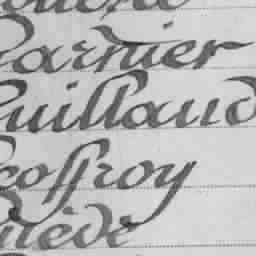 Garnier
Guillaud
Geoffroy